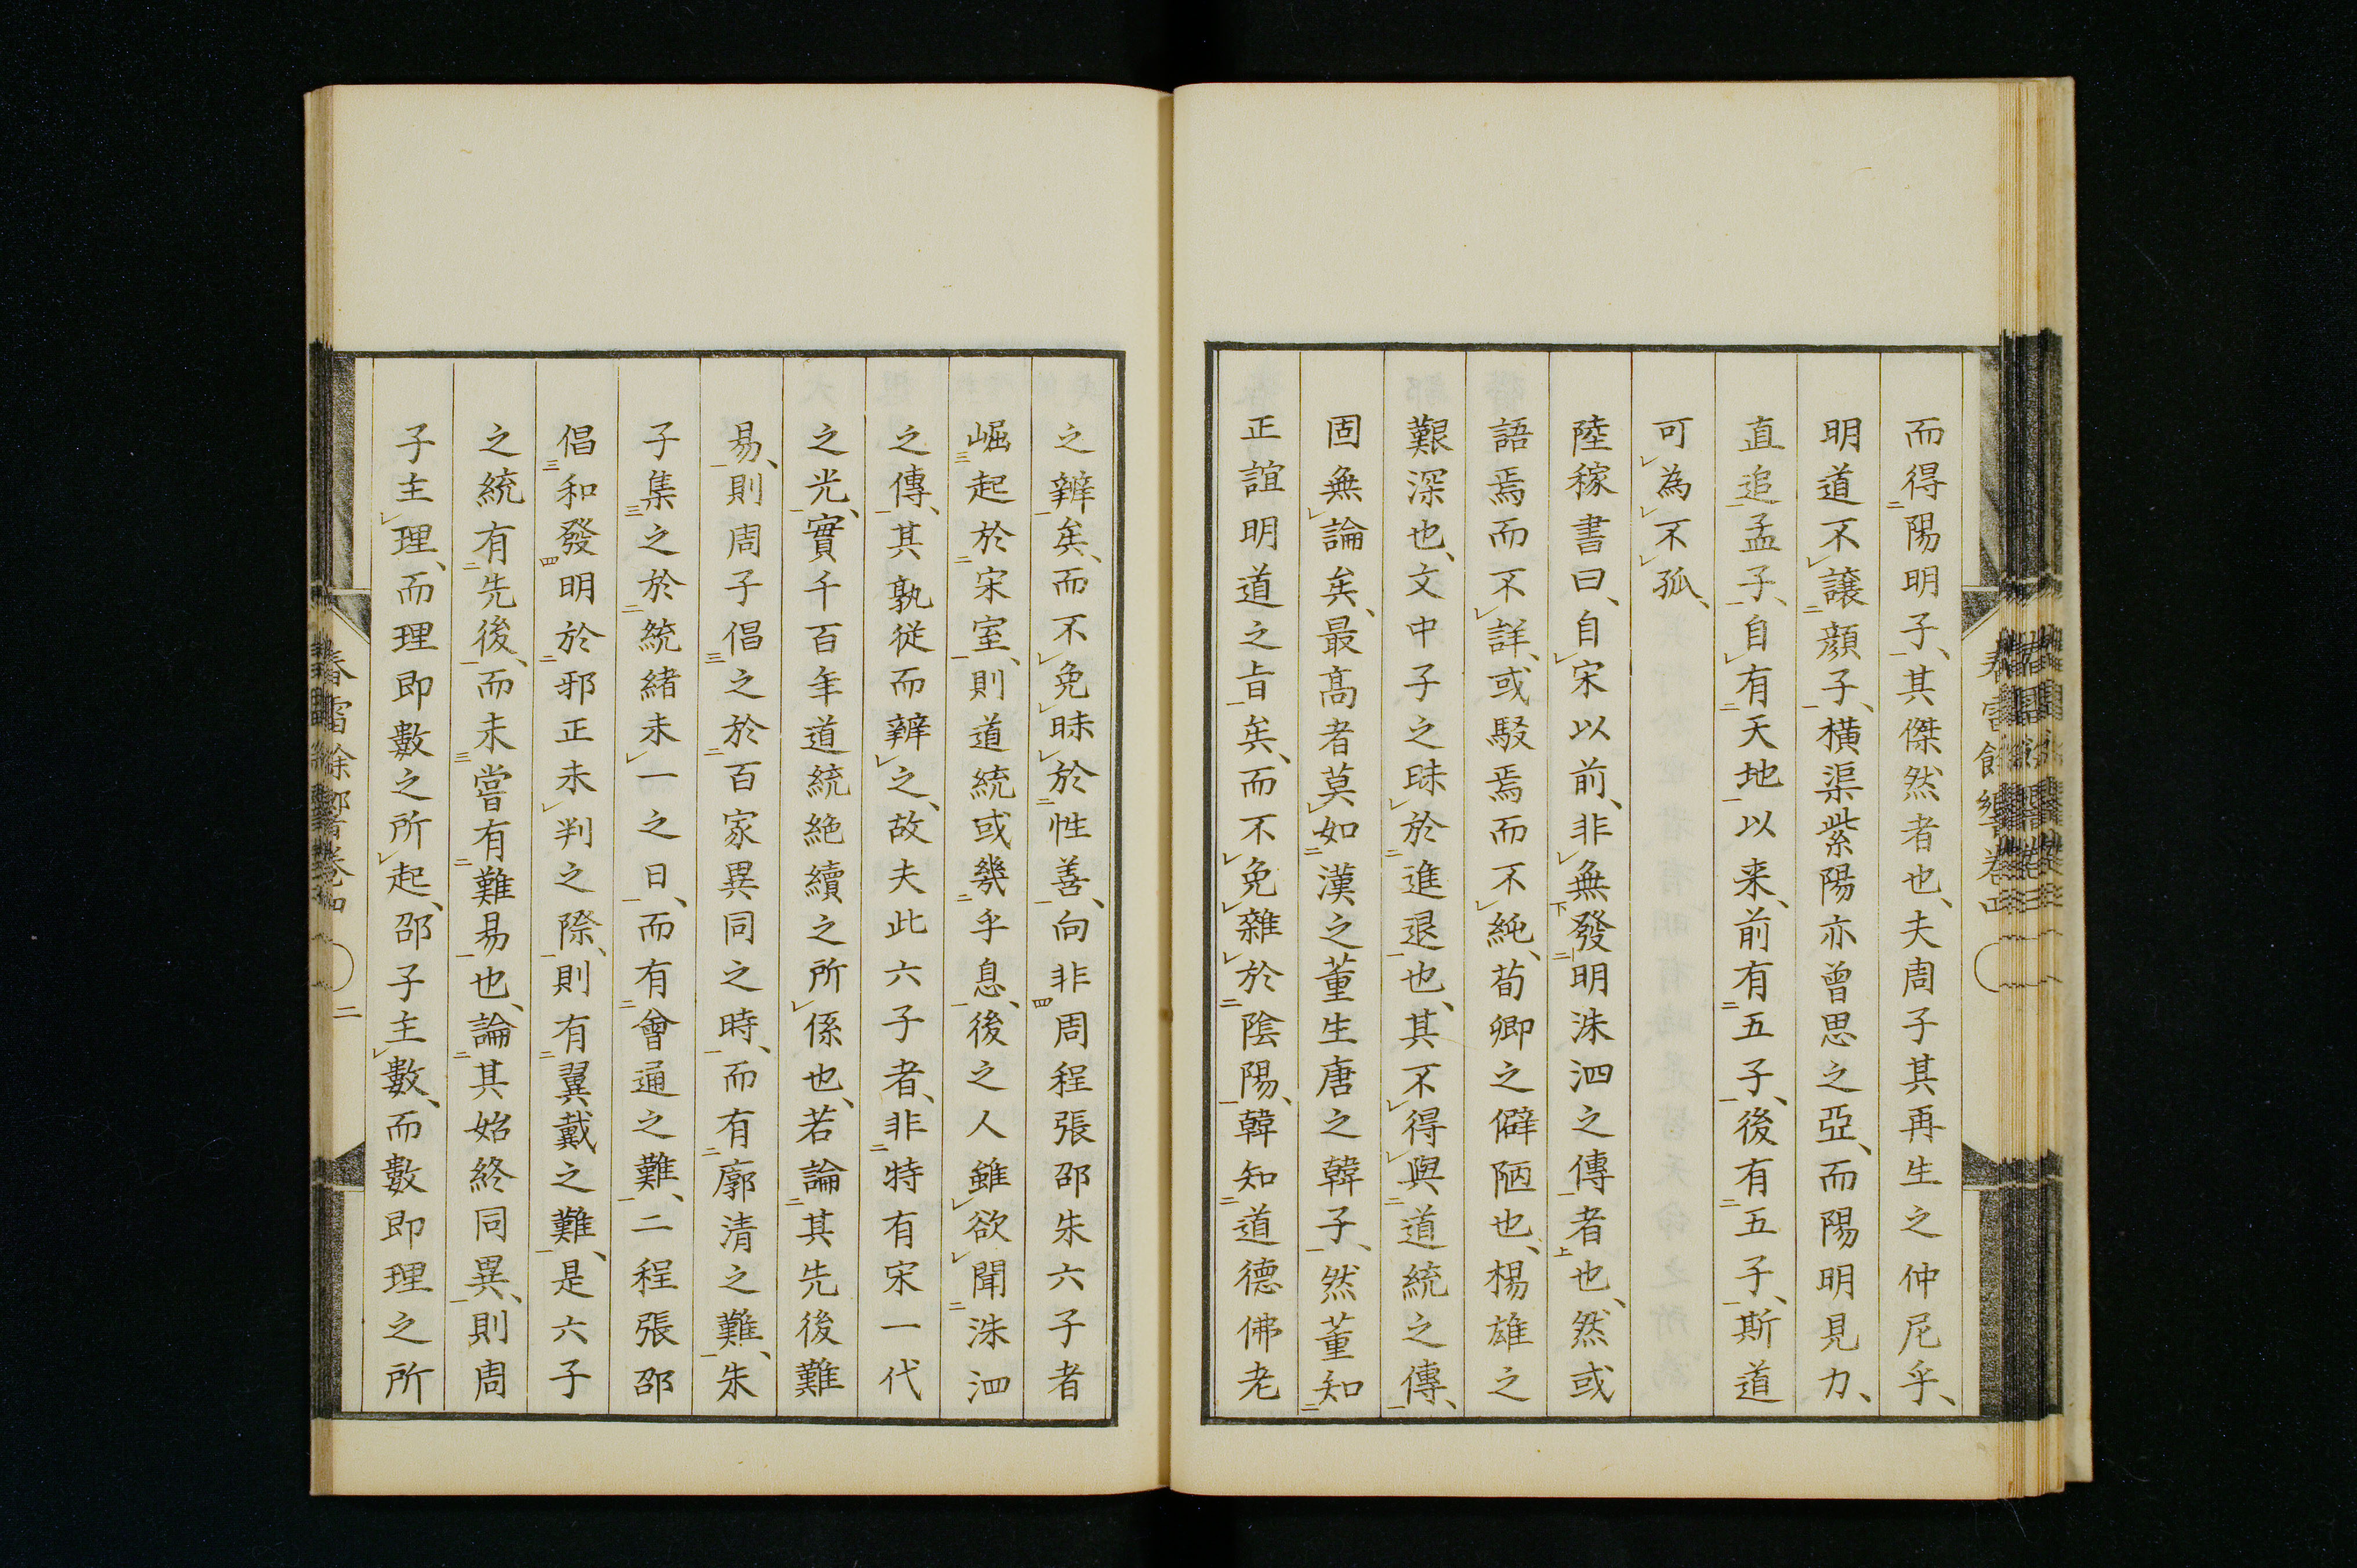 而得陽明子、其傑然者也、夫周子其再生之仲尼乎、
明道不讓顏子、橫渠紫陽亦曾思之亞、而陽明見力、
直追孟子、自有天地以来、前有五子、後有五子、斯道
可為不孤、
陸稼書曰、自宋以前、非無發明洙泗之傳者也、然或
語焉而不詳、或駁焉而不純、荀卿之僻陋也、楊雄之
艱深也、文中子之昧於進退也、其不得與道統之傳、
固無論矣、最高者莫如漢之董生唐之韓子、然董知
正誼明道之旨矣、而不免雜於陰陽、韓知道德佛老
之辨矣、而不免昧於性善、向非周程張邵朱六子者
崛起於宋室、則道統或幾乎息、後之人雖欲聞洙泗
之傳、其孰從而辨之、故夫此六子者、非特有宋一代
之光、實千百年道統絶續之所係也、若論其先後難
易、則周子倡之於百家異同之時、而有廓清之難、朱
子集之於統緒未一之日、而有會通之難、二程張邵
倡和發明於邪正未判之際、則有翼戴之難、是六子
之統有先後、而未嘗有難易也、論其始終同異、則周
子主理、而理即數之所起、邵子主數、而數即理之所
二